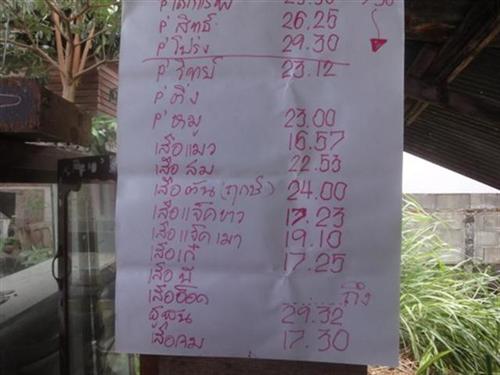 P' สิทธิ์ 26.25
P' โปร่ง 29.30
P' วิทย์ 23.12
P' ติ่ง
P' หมู 23.00
เสือแมว 16.57
เสือ สม 22.53
เสือ ตัน (ฤๅษี) 24.00
เสือแจ๊คยาว 17.23
เสือแจ๊คเมา 19.10
เสือเก๋ 17.25
เสือ บี
เสืออ๊อด ถึง
29.32
เสือคม 17.30